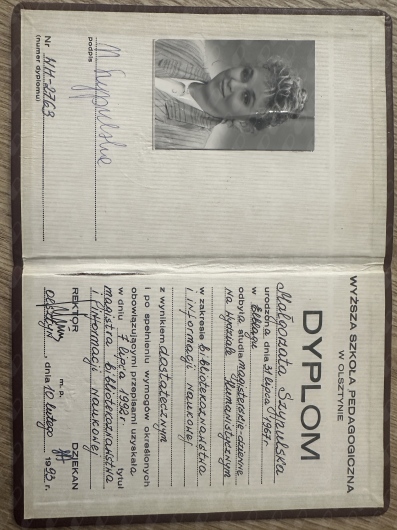 WYŻSZA SZKOŁA PEDAGOGICZNA
W OLSZTYNIE
DYPLOM
Małgorzata Szypulska
urodzona dnia 31 lipca 1967 r.
w Elblągu
odbyła studia magisterskie dzienne
na Wydziale Humanistycznym
w zakresie bibliotekoznawstwa
i informacji naukowej
z wynikiem dostatecznym
i po spełnieniu wymogów określonych
obowiązującymi przepisami uzyskała
w dniu 7 lipca 1992 r. tytuł
magistra bibliotekoznawstwa
i informacji naukowej
REKTOR m. p. DZIEKAN
Olsztyn, dnia 10 lutego 1993 r.
M Szypulska
podpis
Nr HH-2763
(numer dyplomu)